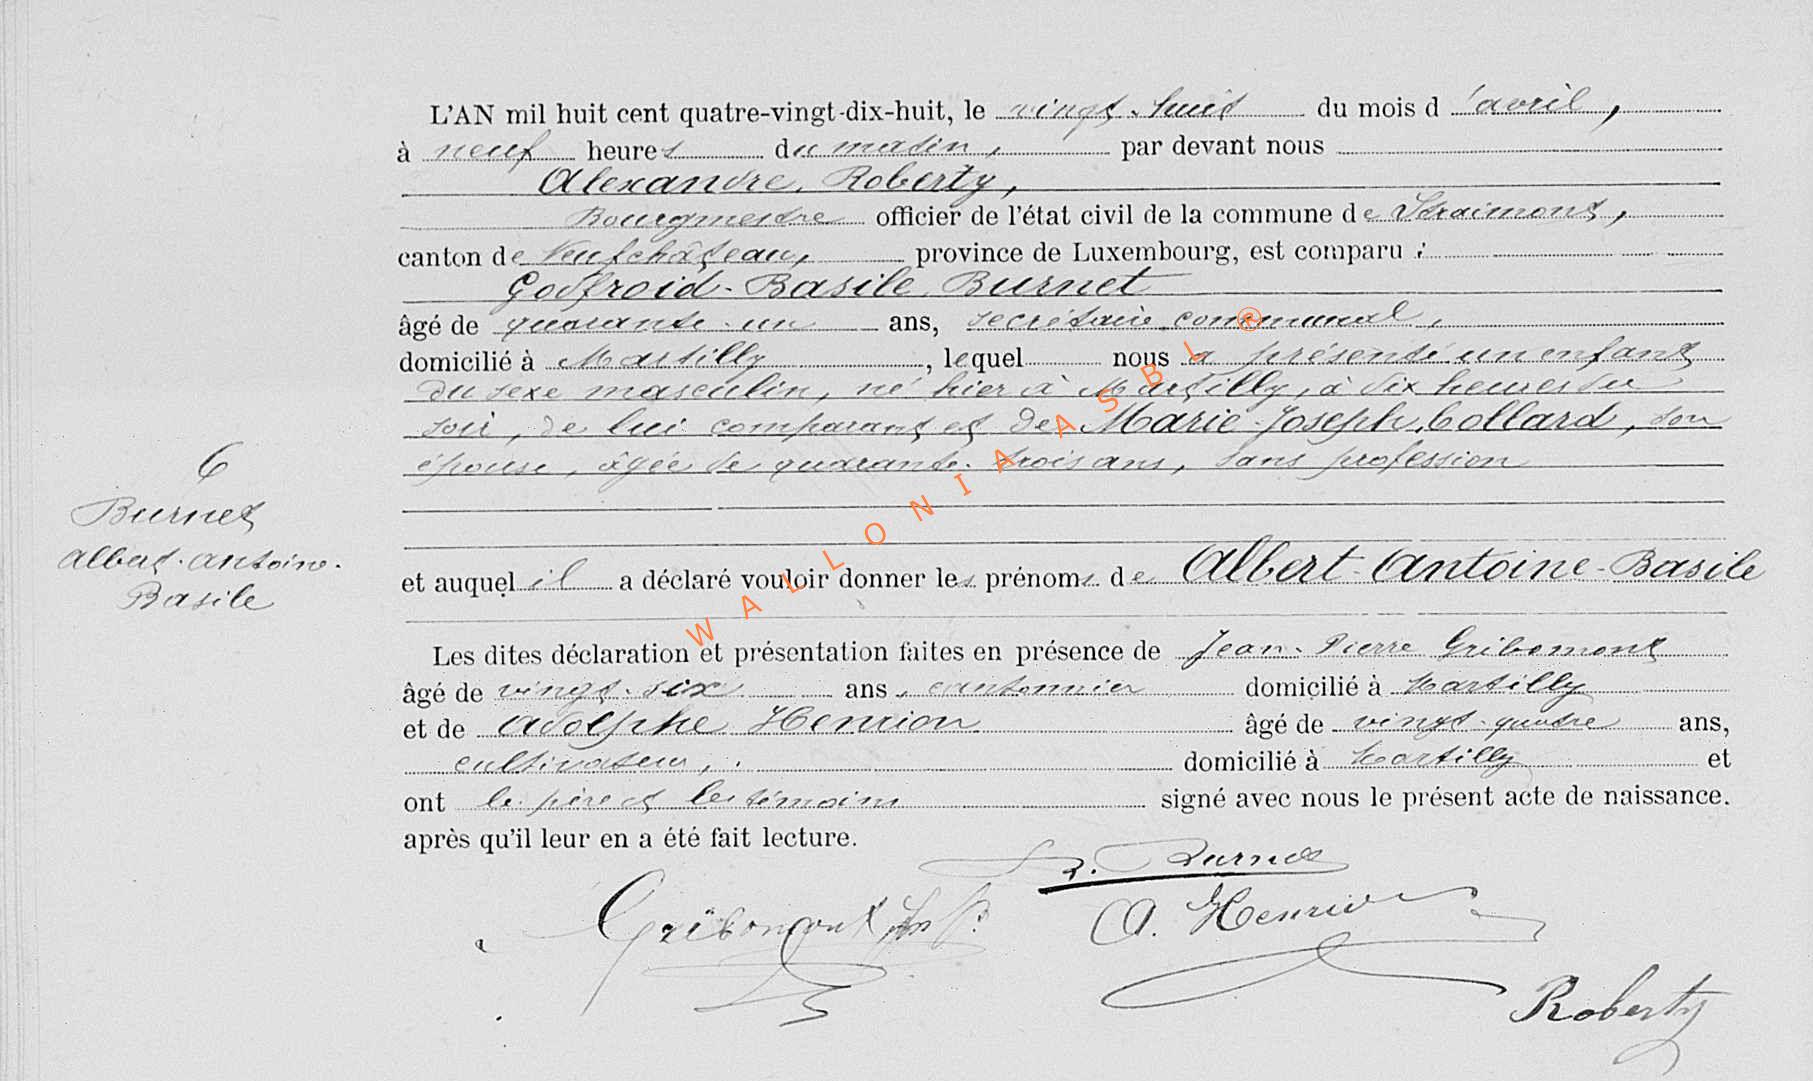 L'AN mil huit cent quatre-vingt-dix-huit, le vingt-huit du mois d'avril,
à neuf heures du matin, par devant nous
Alexandre Roberty,
Bourgmestre officier de l'état civil de la commune de Straimont,
canton de Neufchâteau, province de Luxembourg, est comparu :
Godfroid-Basile Burnet
âgé de quarante-un ans, secrétaire communal,
domicilié à Martilly, lequel nous a présenté un enfant
du sexe masculin, né hier à Martilly, à dix heures du
soir, de lui comparant et de Marie-Joseph Collard, son
épouse, âgée de quarante-trois ans, sans profession
6
Burnet
Albert-Antoine-
Basile
et auquel il a déclaré vouloir donner les prénoms de Albert-Antoine-Basile
Les dites déclaration et présentation faites en présence de Jean-Pierre Gribomont
âgé de vingt-six ans, cantonnier domicilié à Martilly
et de Adolphe Henrion âgé de vingt-quatre ans,
cultivateur, domicilié à Martilly et
ont le père et les témoins signé avec nous le présent acte de naissance.
après qu'il leur en a été fait lecture.
Burnet
Gribomont J. P.
A. Henrion
Roberty
WALLONIA ASBL ®